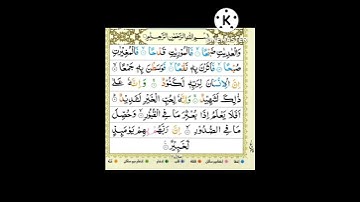 K
بِسْمِ اللَّهِ الرَّحْمَٰنِ الرَّحِيمِ
وَالْعٰدِيٰتِ ضَبْحًا ۝ فَالْمُورِيٰتِ قَدْحًا ۝ فَالْمُغِيرٰتِ
صُبْحًا ۝ فَأَثَرْنَ بِهِ نَقْعًا ۝ فَوَسَطْنَ بِهِ جَمْعًا ۝
إِنَّ الْإِنْسَانَ لِرَبِّهِ لَكَنُودٌ ۝ وَإِنَّهُ عَلَىٰ
ذَٰلِكَ لَشَهِيدٌ ۝ وَإِنَّهُ لِحُبِّ الْخَيْرِ لَشَدِيدٌ ۝
أَفَلَا يَعْلَمُ إِذَا بُعْثِرَ مَا فِي الْقُبُورِ ۝ وَحُصِّلَ
مَا فِي الصُّدُورِ ۝ إِنَّ رَبَّهُمْ بِهِمْ يَوْمَئِذٍ
لَخَبِيرٌ ۝